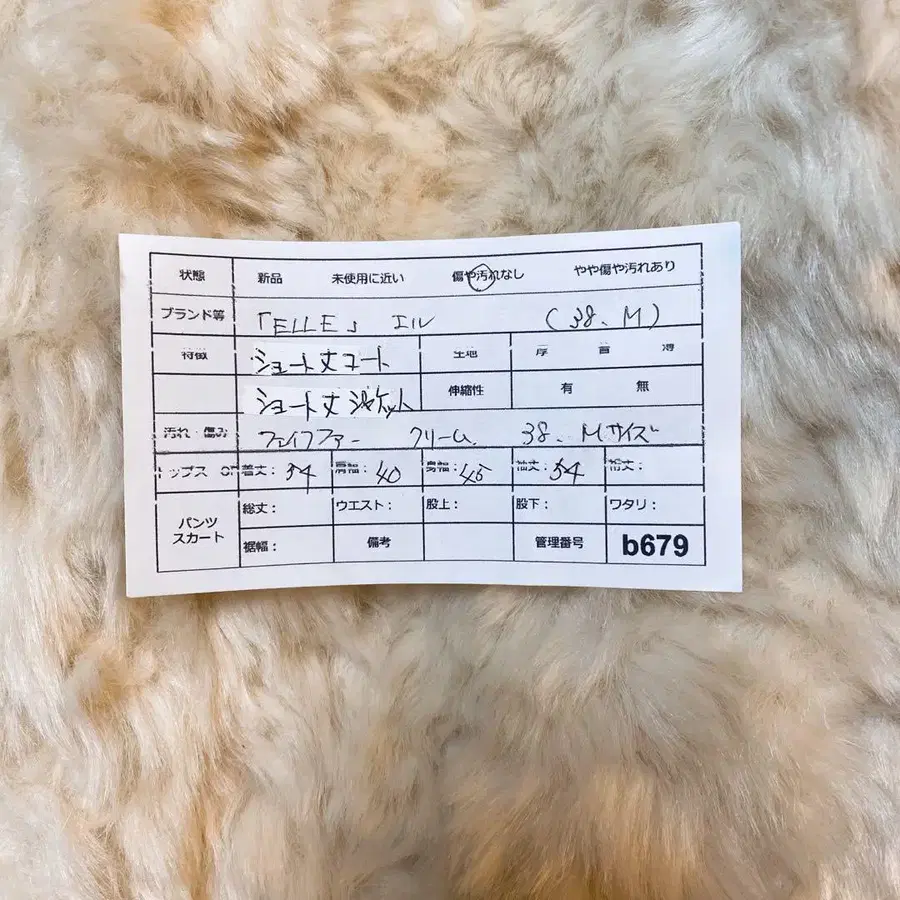 状態 新品 未使用に近い 傷や汚れなし やや傷や汚れあり
ブランド等 「ELLE」 エル (38、M)
特徴 ショート丈コート 生地 厚 普 薄
ショート丈ジャケット 伸縮性 有 無
汚れ・傷み フェイクファー クリーム 38、Mサイズ
トップス 着丈: 54 肩幅: 40 身幅: 45 袖丈: 54 裄丈:
パンツ 総丈: ウエスト: 股上: 股下: ワタリ:
スカート 裾幅: 備考 管理番号 b679